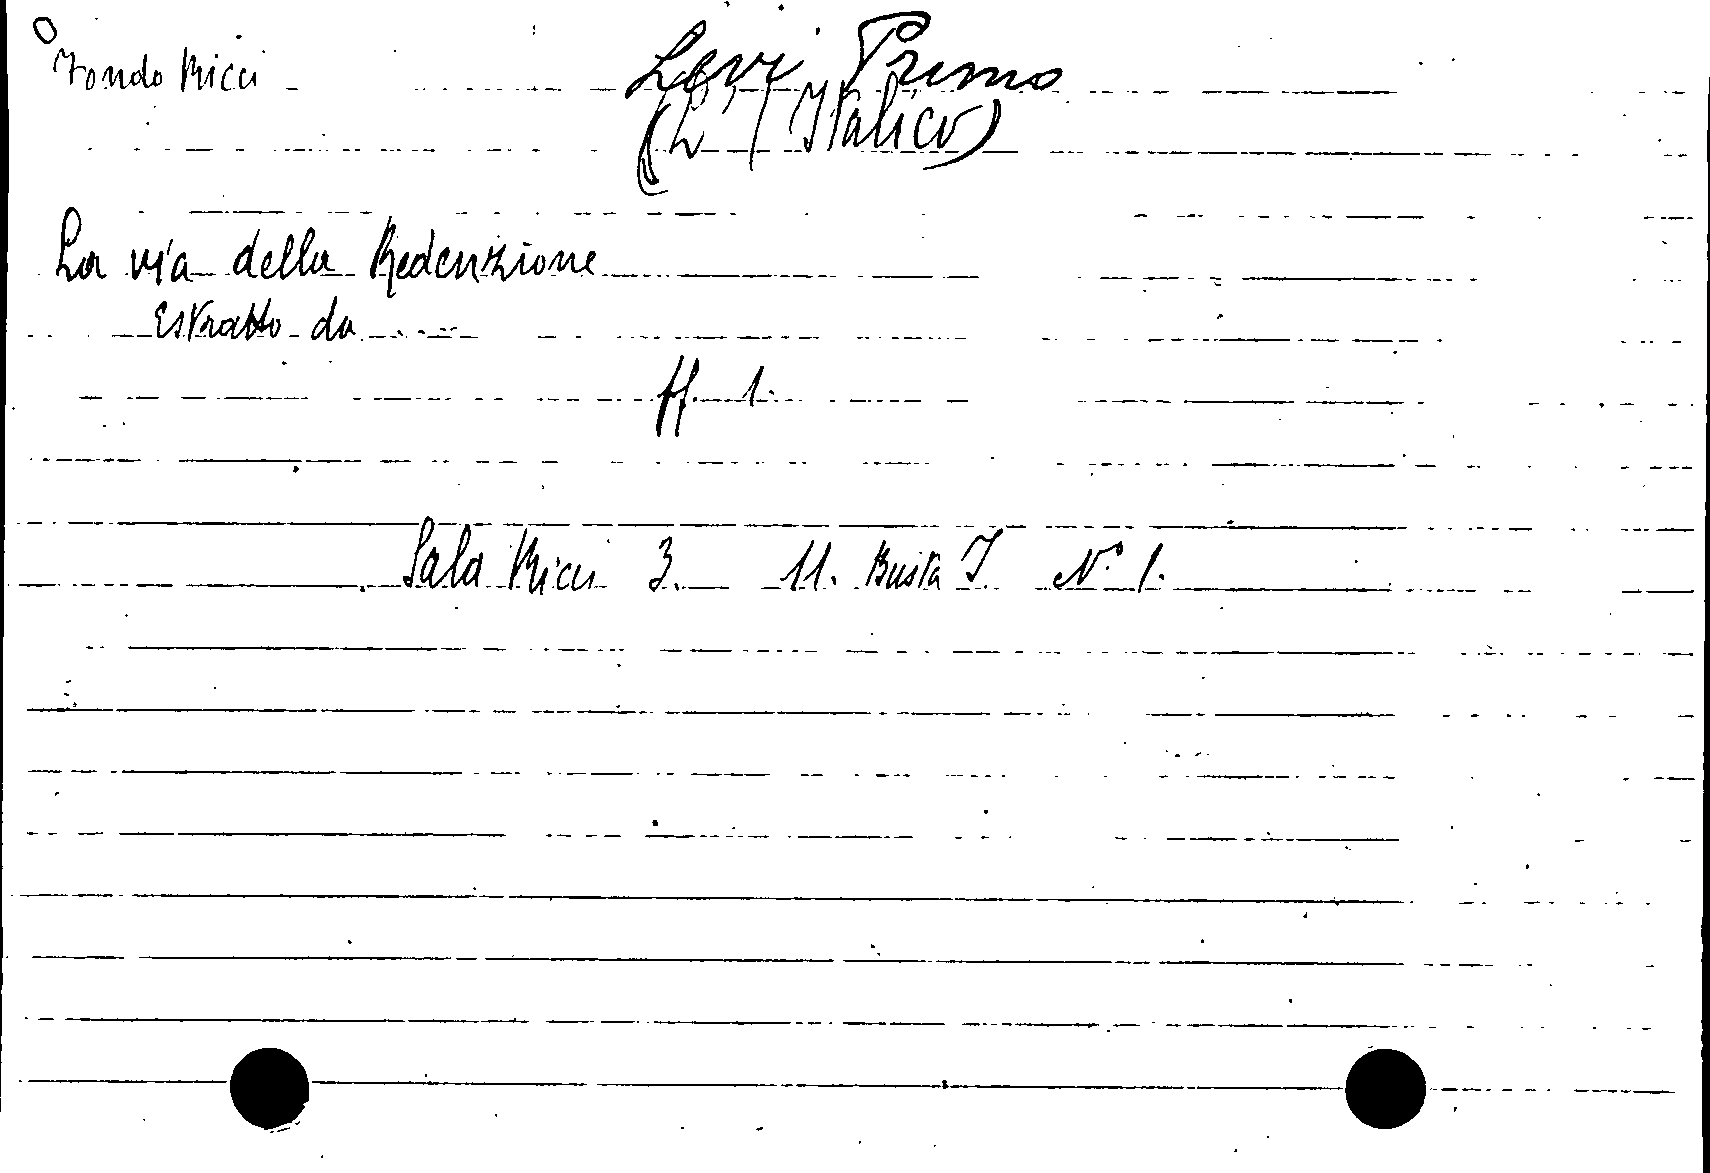 Fondo Ricci
Levi Primo
(L'Italico)
La via della Redenzione
Estratto da .....
ff. 1.
Sala Ricci 3. 11. Busta I N° 1.